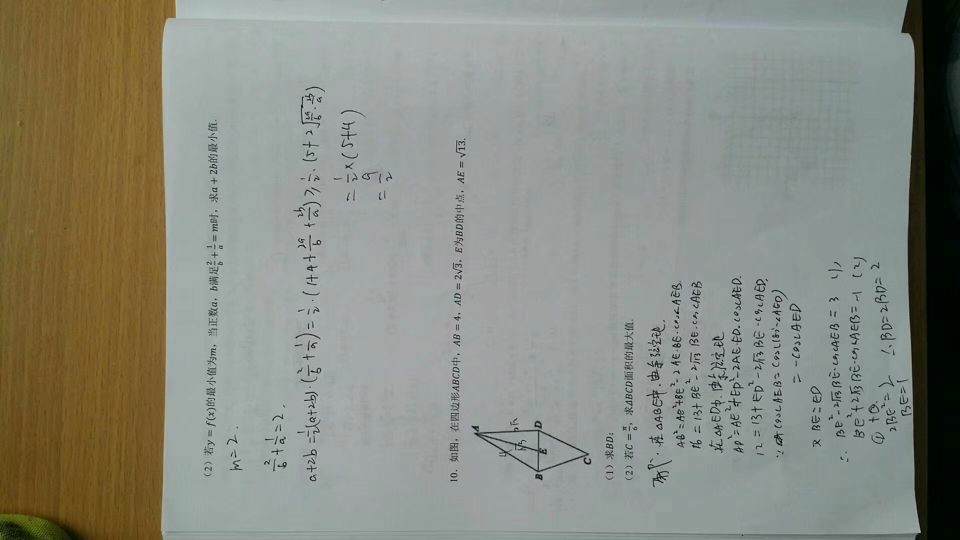 （2）若y = f(x)的最小值为m，当正数a，b满足2/b + 1/a = m时，求a + 2b的最小值.
m=2.
2/b + 1/a = 2.
a+2b = 1/2(a+2b)·(2/b + 1/a) = 1/2·(1+4+2a/b+2b/a) ≥ 1/2·(5+2√(2a/b·2b/a)
= 1/2×(5+4)
= 9/2
10. 如图，在四边形ABCD中，AB = 4，AD = 2√3，E为BD的中点，AE = √13.
A
4
√13
2√3
B
E
D
C
（1）求BD；
（2）若C = π/3，求ABCD面积的最大值.
在△ABE中，由余弦定理.
AB²=AE²+BE²-2AE·BE·cos∠AEB.
16=13+BE²-2√13 BE·cos∠AEB
在△AED中，由余弦定理
AD²=AE²+ED²-2AE·ED·cos∠AED.
12=13+ED²-2√13BE·cos∠AED.
cos∠AEB=cos(180°-∠AED)
=-cos∠AED
又BE=ED
∴ BE²-2√13BE·cos∠AEB=3 (1),
BE²+2√13BE·cos∠AEB=-1 (2)
①+②
2BE²=2 ∴BD=2BE=2
BE=1